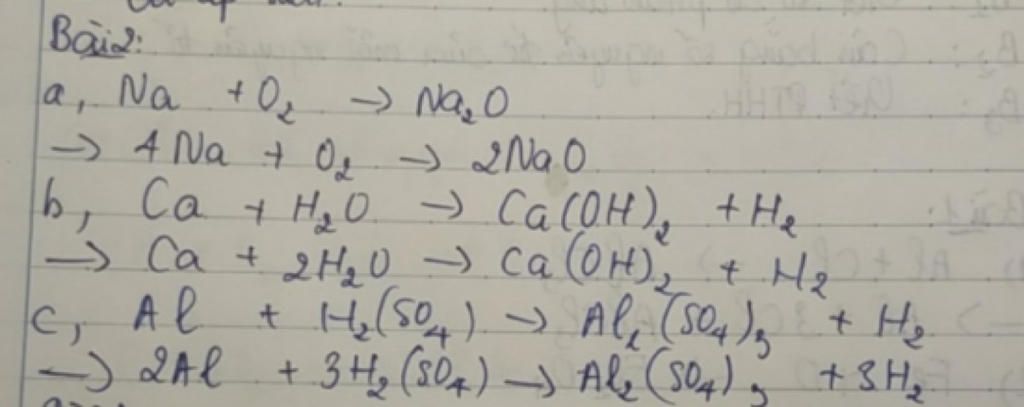 Bài 2:
a, Na + O₂ → Na₂O
→ 4Na + O₂ → 2NaO
b, Ca + H₂O → Ca(OH)₂ + H₂
→ Ca + 2H₂O → Ca(OH)₂ + H₂
c, Al + H₂(SO₄) → Al₂(SO₄)₃ + H₂
→ 2Al + 3H₂(SO₄) → Al₂(SO₄)₃ + 3H₂